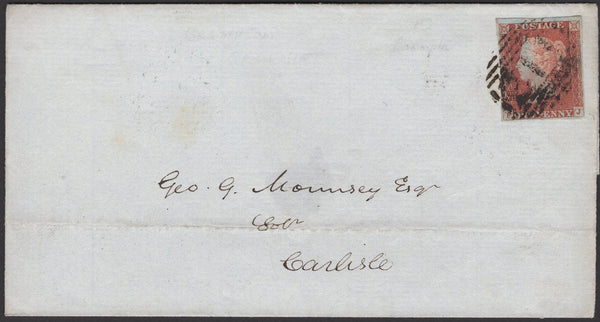 POSTAGE
PENNY
J
Geo. G. Mounsey Esqr
Solr
Carlisle